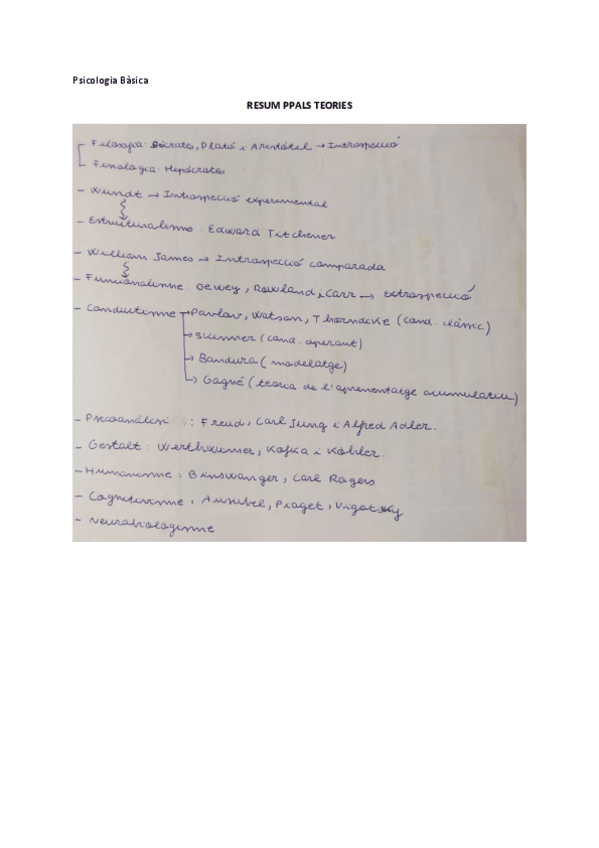 Psicologia Bàsica
RESUM PPALS TEORIES
Filosofia: Sócrates, Plató i Aristòtil → Introspecció
Fisiologia: Hipócrates
- Wundt → Introspecció experimental
- Estructuralisme: Edward Titchener
- William James → Introspecció comparada
- Funcionalisme: Dewey, Rowland i Carr → extrospecció
- Conductisme → Pavlov, Watson, Thorndicke (cond. clàssic)
→ Skinner (cond. operant)
→ Bandura (modelatge)
→ Gagné (teoria de l'aprenentatge acumulatiu)
- Psicoanàlisi: Freud, Carl Jung i Alfred Adler.
- Gestalt: Wertheimer, Kofka i Köhler.
- Humanisme: Binswanger, Carl Rogers
- Cognitivisme, Ausubel, Piaget, Vigotsky
- Neurobiologisme